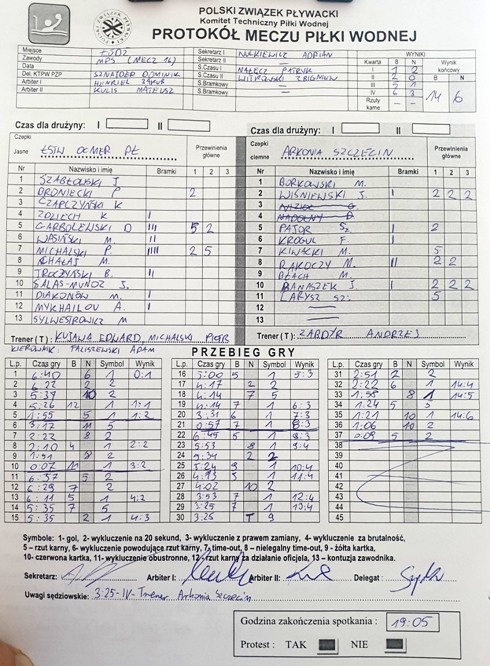 POLSKI ZWIĄZEK PŁYWACKI
Komitet Techniczny Piłki Wodnej
PROTOKÓŁ MECZU PIŁKI WODNEJ
Miejsce ŁÓDŹ
Zawody MPS (MECZ 14)
Data
Del. KTPW PZP SZNAJDER DOMINIK
Arbiter I
Arbiter II KULIS MATEUSZ
Sekretarz I ADRIAN
Sekretarz II
S.Czasu I PATRYK
S.Czasu II ZBIGNIEW
S.Bramkowy
S.Bramkowy
WYNIKI
Kwarta B N Wynik końcowy
I 1 2
II 2 0
III 2 1
IV 6 3
Rzuty karne – –
14 6
Czas dla drużyny: I II
Czas dla drużyny: I II
Czepki jasne ŁSTW OCMER PŁ
Przewinienia główne
Czepki ciemne ARKONIA SZCZECIN
Przewinienia główne
Nr Nazwisko i imię Bramki 1 2 3
1 SZABŁOWSKI J.
2 BRONIECKI P 2
3 CZAPCZYŃSKI K
4 ZOLIECH K I
5 GARBOLEWSKI D III 5 2
6 WASIŃSKI M.
7 MICHALSKI P IIII 2 5
8 M.
9 TROCZYŃSKI B. II
10 SALAS-MUÑOZ J.
11 DIAKONÓW M. I
12 MYKHAILOV A. I
13 SYLWESTROWICZ M
Nr Nazwisko i imię Bramki 1 2 3
1 BORKOWSKI M.
2 WIŚNIEWSKI J. I 2 2 2
5 PAJOR Sz. I 2
6 KROGUL F. I
7 KIWACKI M. 5
8 RAKOCZY M. II 2 2
9 BŁACH M.
10 BANASZEK J. I 2 2 2
11 LARYSZ SZ. 5
12 –
13 –
Trener ( T ) : KUJAWA EDWARD, MICHALSKI PIOTR
KIEROWNIK: PALISZEWSKI ADAM
Trener ( T ) : ZABDYR ANDRZEJ
PRZEBIEG GRY
L.p. Czas gry B N Symbol Wynik
1 6:40 6 1 0:1
2 6:22 2 2
3 5:39 10 2
4 5:26 12 1 1:1
5 1:55 5 1 1:2
6 3:17 11 5
7 2:22 8 2
8 2:10 4 1 2:2
9 1:51 8 2
10 0:07 10 1 3:2
11 6:57 5 2
12 6:29 7 2
13 6:11 5 1 4:2
14 5:35 7 5
15 5:35 2 1 4:3
L.p. Czas gry B N Symbol Wynik
16 5:00 5 1 5:3
17 4:17 2 2
18 4:14 7 5
19 4:14 7 1 6:3
20 3:31 6 1 7:3
21 0:57 7 1 8:3
22 6:45 5 1 9:3
23 5:53 8 1 9:4
24 2 2
25 5:24 9 1 10:4
26 5 1 11:4
27 4:02 10 2
28 3:53 7 1 12:4
29 3:25 7 1 13:4
30 3:25 T 9
L.p. Czas gry B N Symbol Wynik
31 2:51 2 2
32 2:22 6 1 14:4
33 1:55 8 1 14:5
34 1:24 5 2
35 1:21 10 1 14:6
36 1:06 10 2
37 0:09 5 2
38
39
40
41
42
43
44
45
Symbole: 1- gol, 2- wykluczenie na 20 sekund, 3- wykluczenie z prawem zamiany, 4- wykluczenie za brutalność,
5 – rzut karny, 6- wykluczenie powodujące rzut karny, 7- time-out, 8 – nielegalny time-out, 9 - żółta kartka,
10- czerwona kartka, 11- wykluczenie obustronne, 12 – rzut karny za działanie oficjela, 13 – kontuzja zawodnika.
Sekretarz: Arbiter I : Arbiter II : Delegat :
Uwagi sędziowskie: 3:25 - IV - Trener Arkonia Szczecin
Godzina zakończenia spotkania : 19:05
Protest : TAK NIE